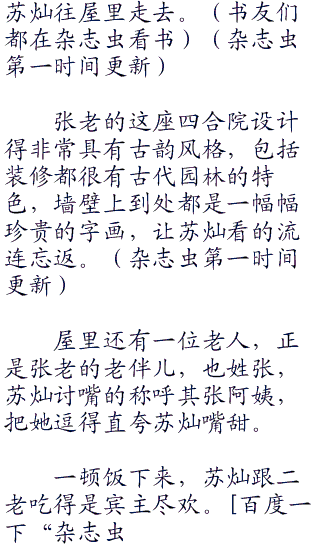 苏灿往屋里走去。（书友们
都在杂志虫看书）（杂志虫
第一时间更新）
张老的这座四合院设计
得非常具有古韵风格，包括
装修都很有古代园林的特
色，墙壁上到处都是一幅幅
珍贵的字画，让苏灿看的流
连忘返。（杂志虫第一时间
更新）
屋里还有一位老人，正
是张老的老伴儿，也姓张，
苏灿讨嘴的称呼其张阿姨，
把她逗得直夸苏灿嘴甜。
一顿饭下来，苏灿跟二
老吃得是宾主尽欢。[百度一
下“杂志虫